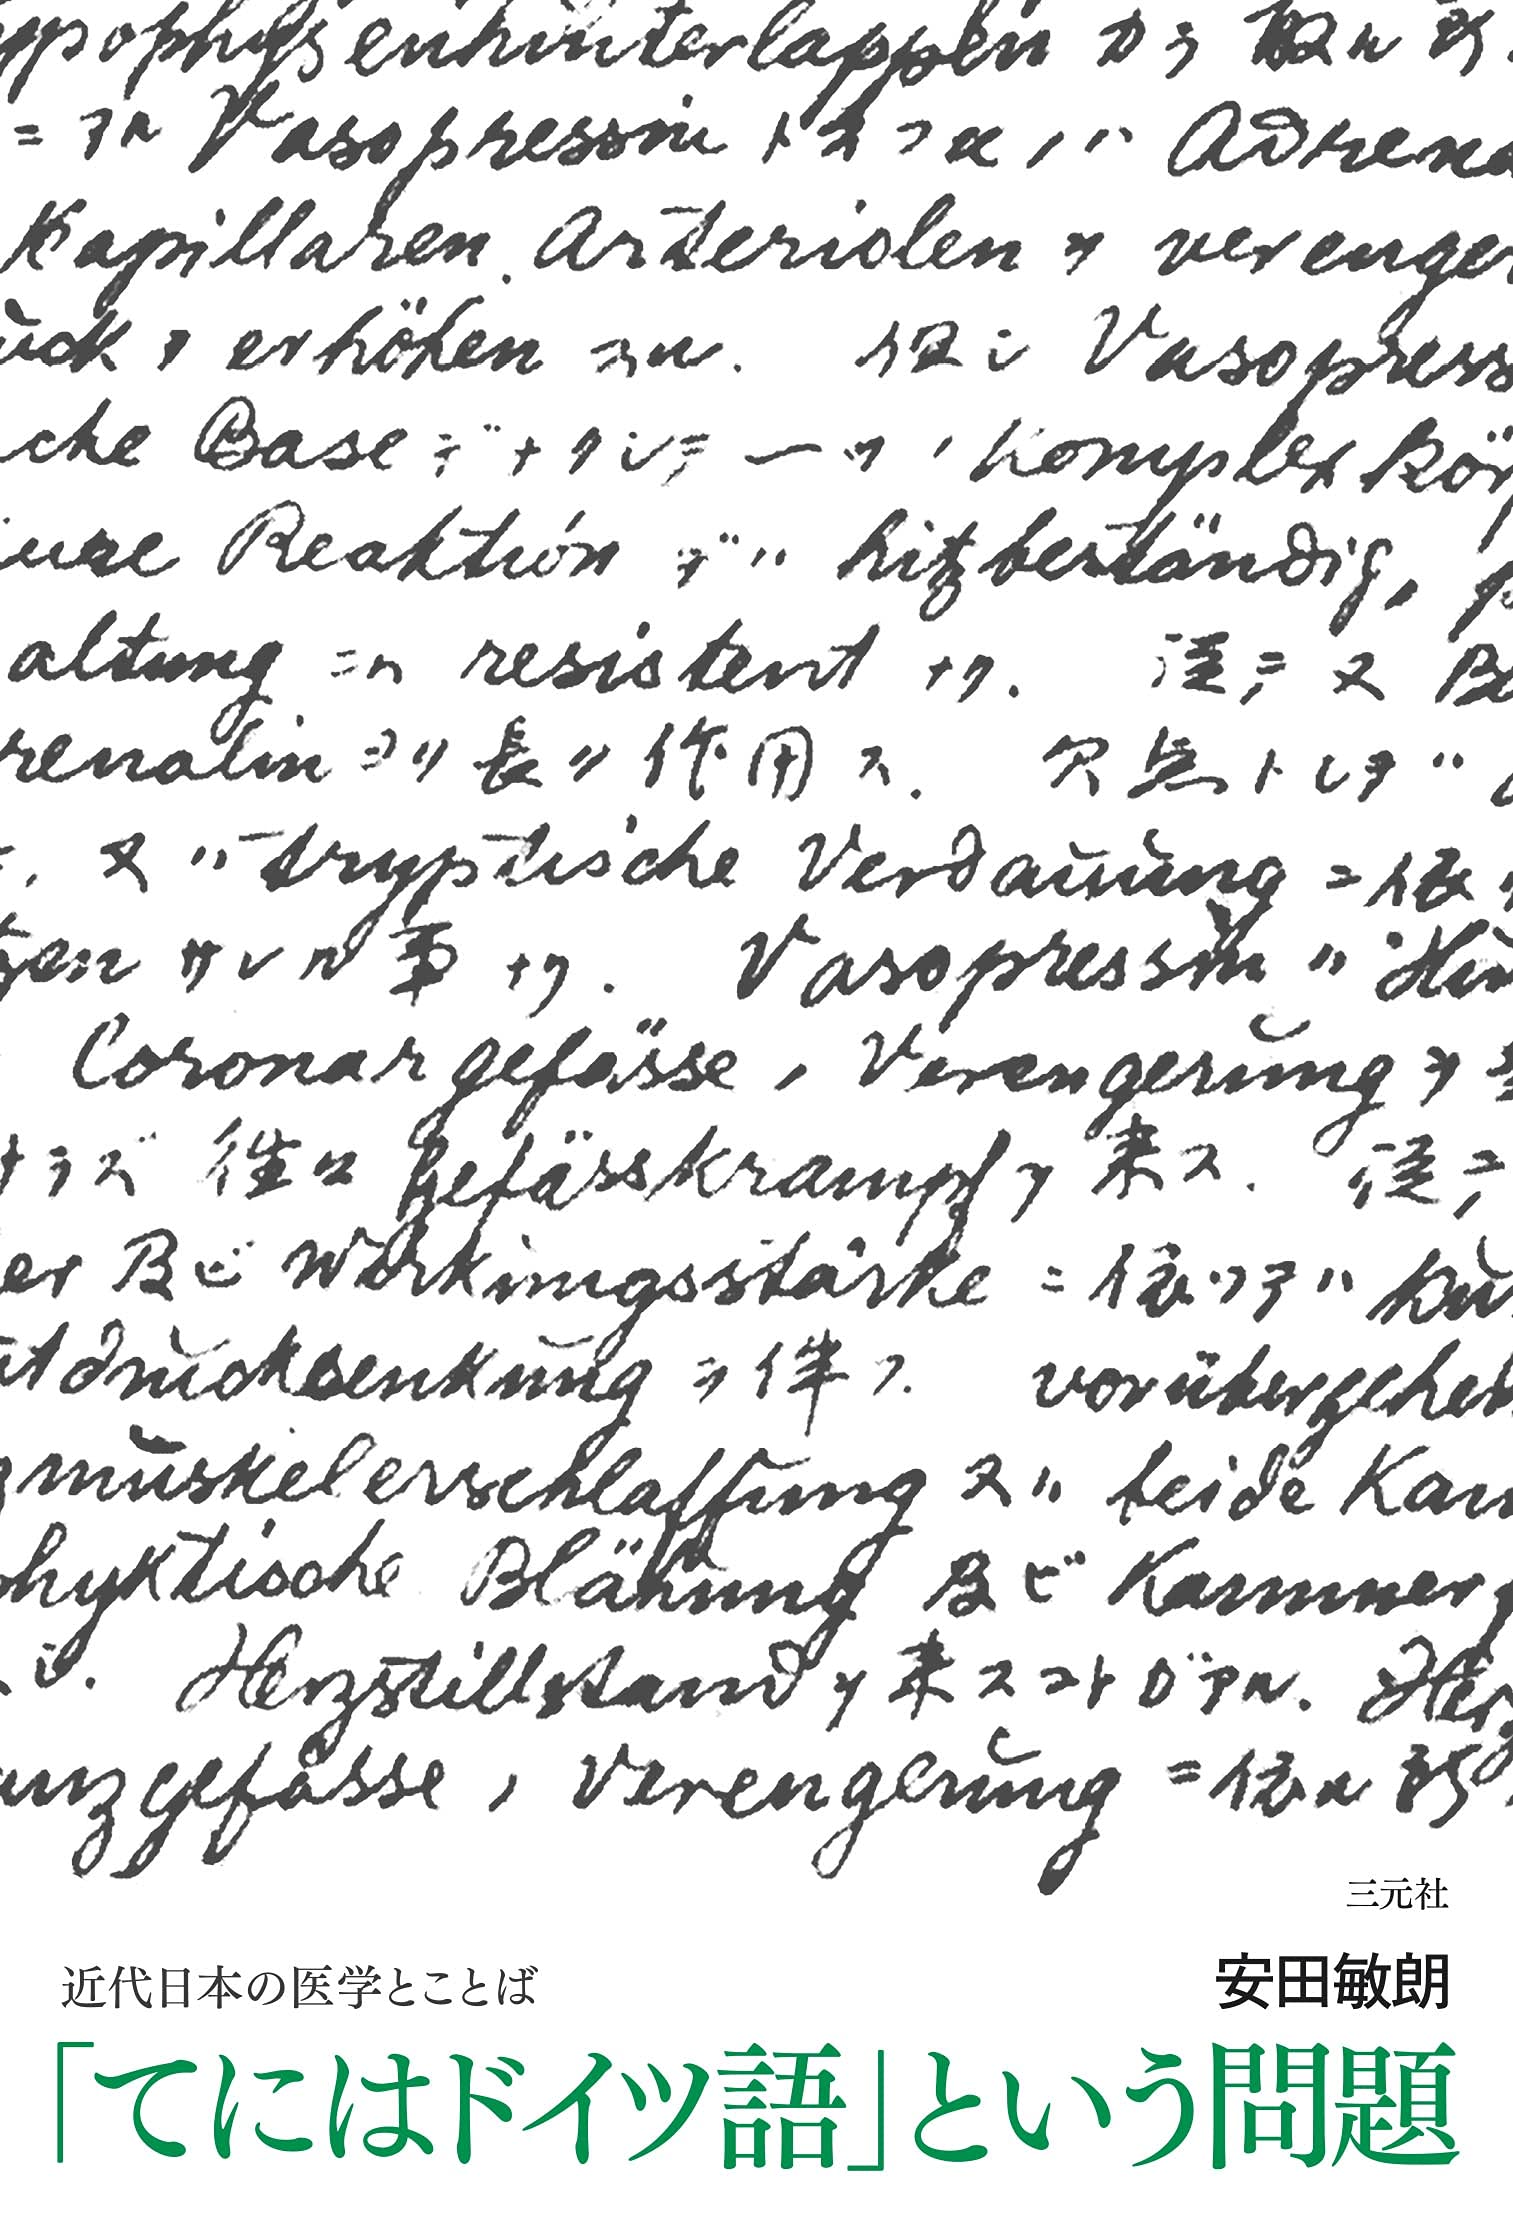 ypophysenhinterlappen カラ 取ル
= アル Vasopressin ハ Adrena
Kapillaren. Arteriolen ヲ verenger
ück ヲ erhöhen スル. 但シ Vasopress
che Base デナクシテ一ツノ Komplexkör
aure Reaktion デハ hitzbeständig, p
altung ニハ resistent ナリ. 従テ又 B
renalin ヨリ長ク作用ス. 欠点トシテハ
. 又ハ tryptische Verdauung ニ依
gen サレル事ナリ. Vasopressin ハ
Coronargefässe ノ Verengerung ヲ
ナラズ往々 Gefässkrampf ヲ来ス. 従テ
er B ビ Wirkungsstärke ニ依ツテハ
utdrucksenkung ヲ伴フ. vorübergehe
zmuskelerschlaffung 又ハ beide Kam
phyktische Blähung 及ビ Kammer
. Herzstillstand ヲ来スコトガアル. Her
anzgefässe ノ Verengerung ニ依ル
三元社
近代日本の医学とことば
安田敏朗
「てにはドイツ語」という問題